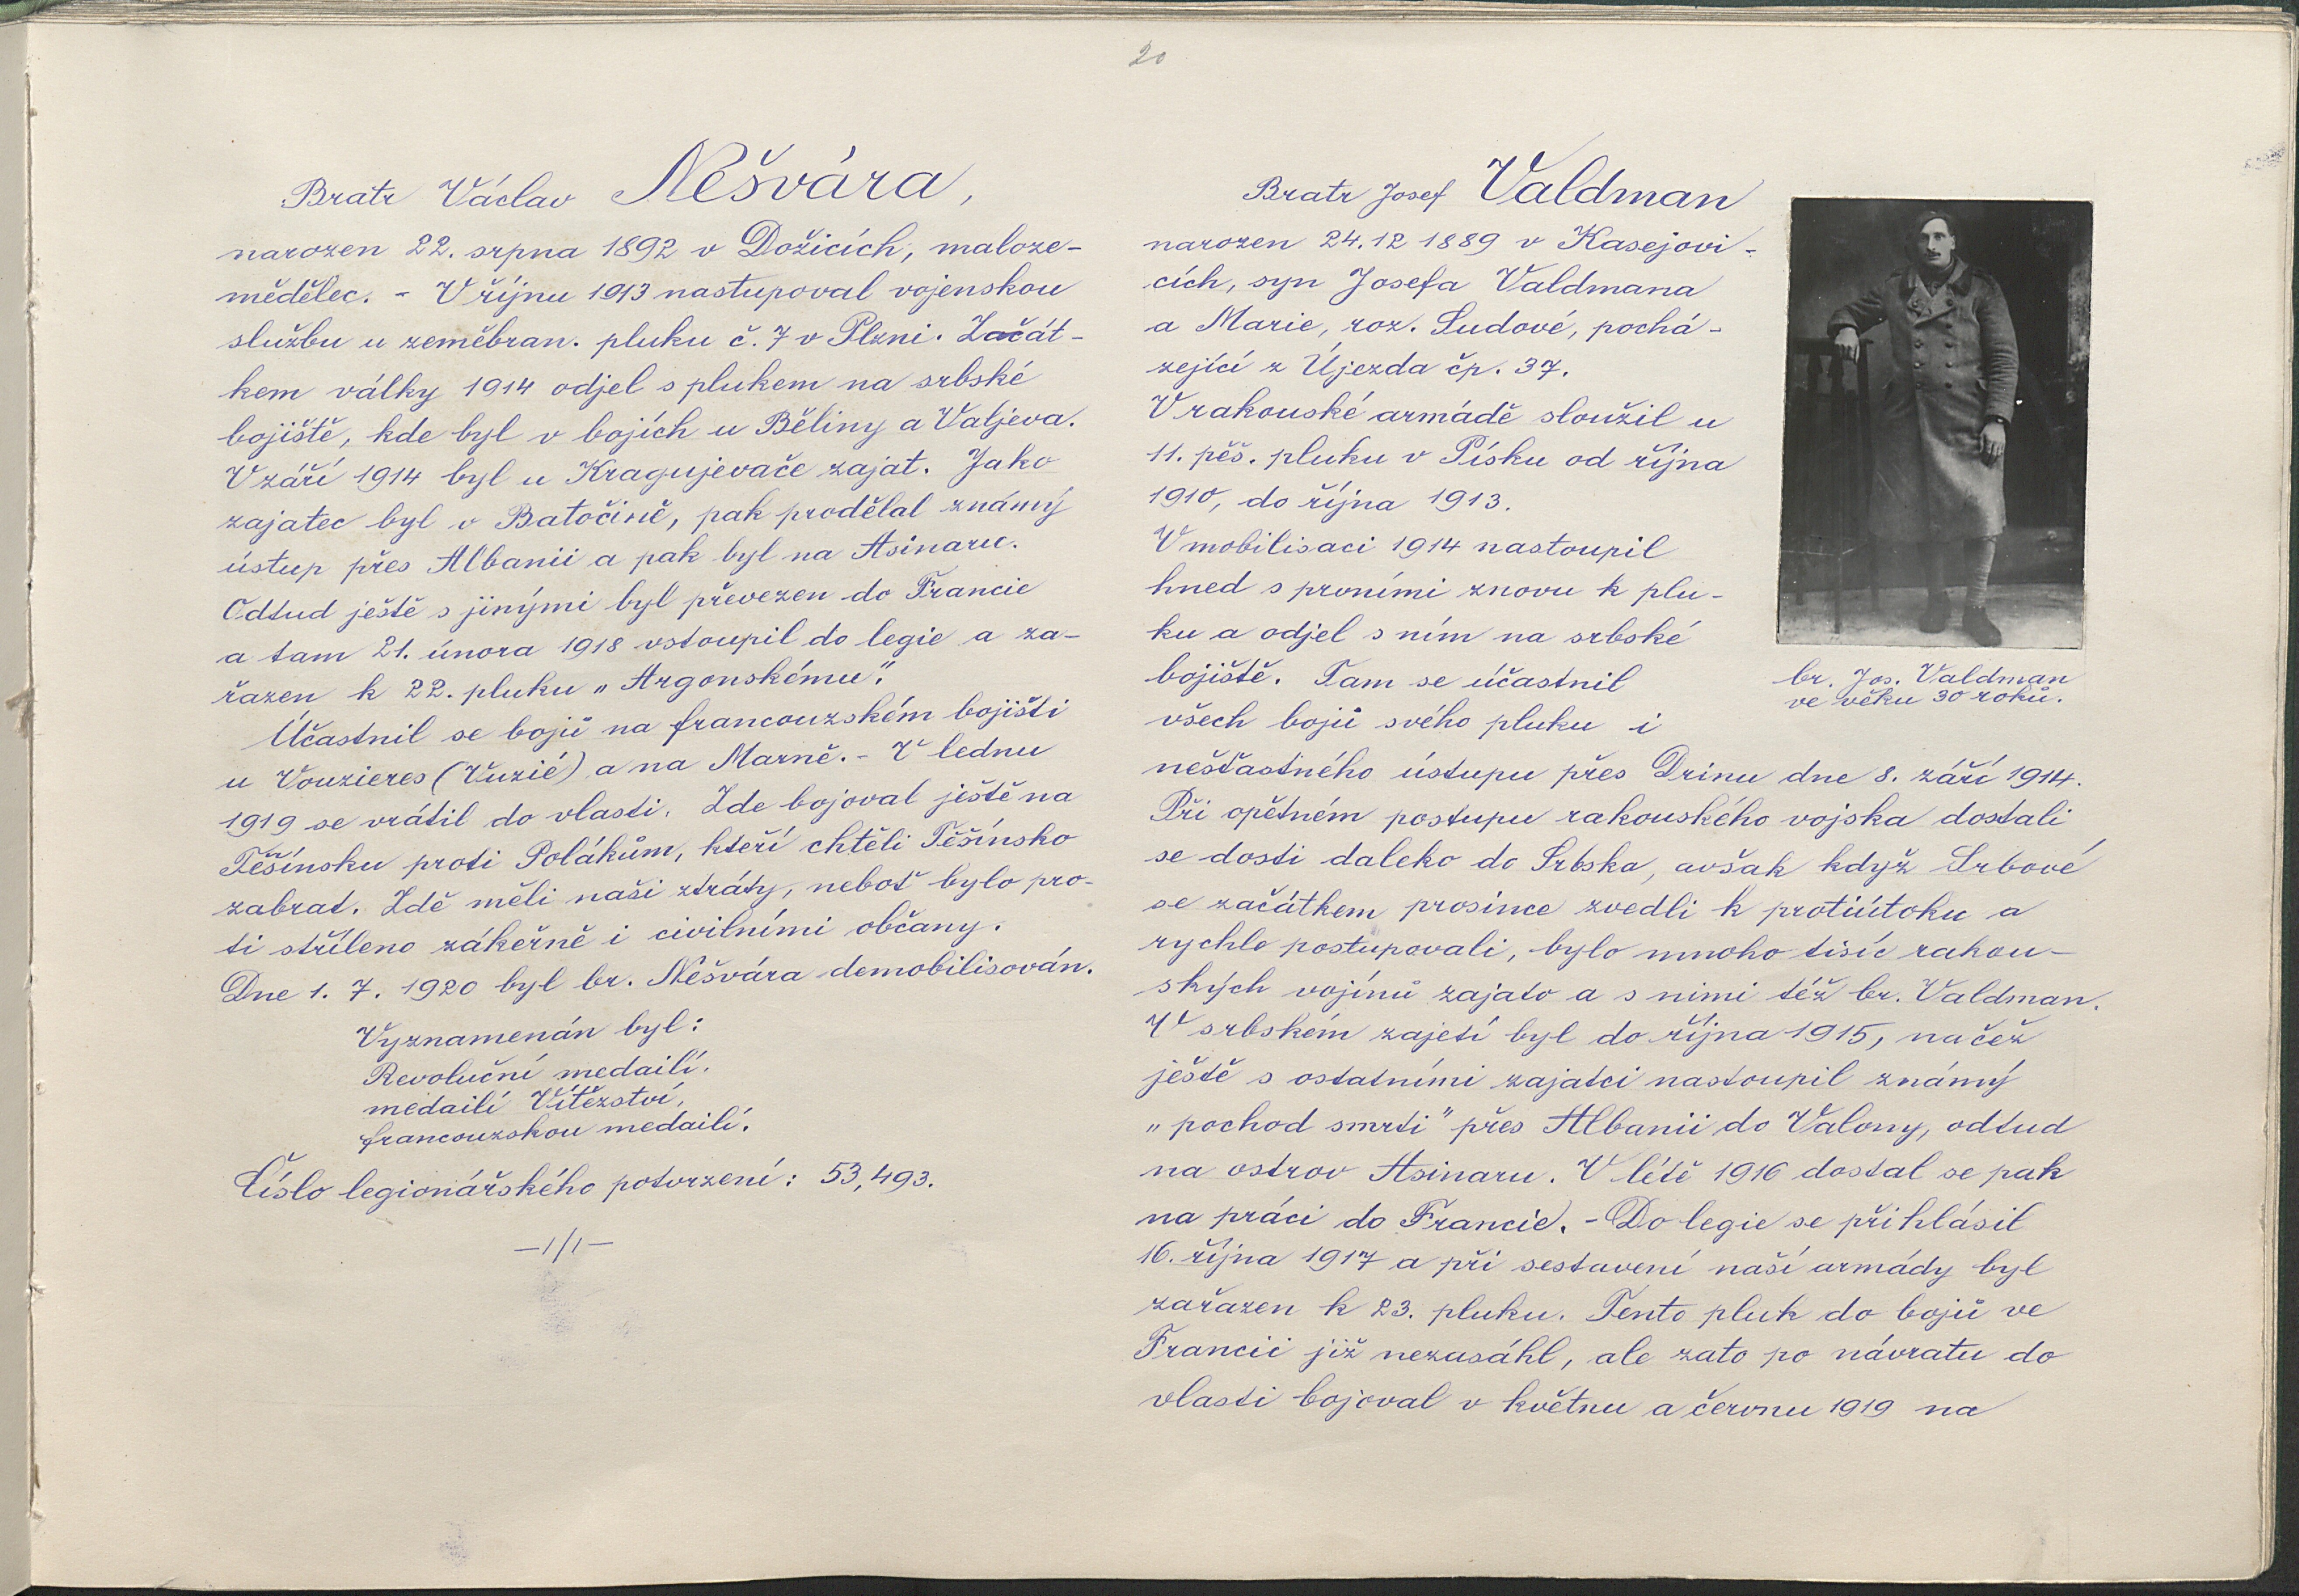 20
Bratr Václav Nešvára,
narozen 22. srpna 1892 v Dožicích, maloze-
mědělec. - V říjnu 1913 nastupoval vojenskou
službu u zeměbran. pluku č. 7 v Plzni. Začát-
kem války 1914 odjel s plukem na srbské
bojiště, kde byl v bojích u Běliny a Valjeva.
V září 1914 byl u Kragujevače zajat. Jako
zajatec byl v Batočině, pak prodělal známý
ústup přes Albanii a pak byl na Asinaru.
Odtud ještě s jinými byl převezen do Francie
a tam 21. února 1918 vstoupil do legie a za-
řazen k 22. pluku „Argonskému".
Účastnil se bojů na francouzském bojišti
u Vouzieres (Vuzié) a na Marně. - V lednu
1919 se vrátil do vlasti. Zde bojoval ještě na
Těšínsku proti Polákům, kteří chtěli Těšínsko
zabrat. Zdě měli naši ztráty, neboť bylo pro-
ti stříleno zákeřně i civilními občany.
Dne 1. 7. 1920 byl br. Nešvára demobilisován.
Vyznamenán byl:
Revoluční medailí.
medailí Vítězství,
francouzskou medailí.
Číslo legionářského potvrzení: 53,493.
—1/1—
Bratr Josef Valdman
narozen 24.12 1889 v Kasejovi-
cích, syn Josefa Valdmana
a Marie, roz. Sudové, pochá-
zející z Újezda čp. 37.
V rakouské armádě sloužil u
11. pěš. pluku v Písku od října
1910, do října 1913.
V mobilisaci 1914 nastoupil
hned s prvními znovu k plu-
ku a odjel s ním na srbské
bojiště. Tam se účastnil
všech bojů svého pluku i
nešťastného ústupu přes Drinu dne 8. září 1914.
Při opětném postupu rakouského vojska dostali
se dosti daleko do Srbska, avšak když Srbové
se začátkem prosince zvedli k protiútoku a
rychle postupovali, bylo mnoho tisíc rakou-
ských vojínů zajato a s nimi též br. Valdman.
V srbském zajetí byl do října 1915, načež
ještě s ostatními zajatci nastoupil známý
„pochod smrti" přes Albanii do Valony, odtud
na ostrov Asinaru. V létě 1916 dostal se pak
na práci do Francie. - Do legie se přihlásil
16. října 1917 a při sestavení naší armády byl
zařazen k 23. pluku. Tento pluk do bojů ve
Francii již nezasáhl, ale zato po návratu do
vlasti bojoval v květnu a červnu 1919 na
br. Jos. Valdman
ve věku 30 roků.